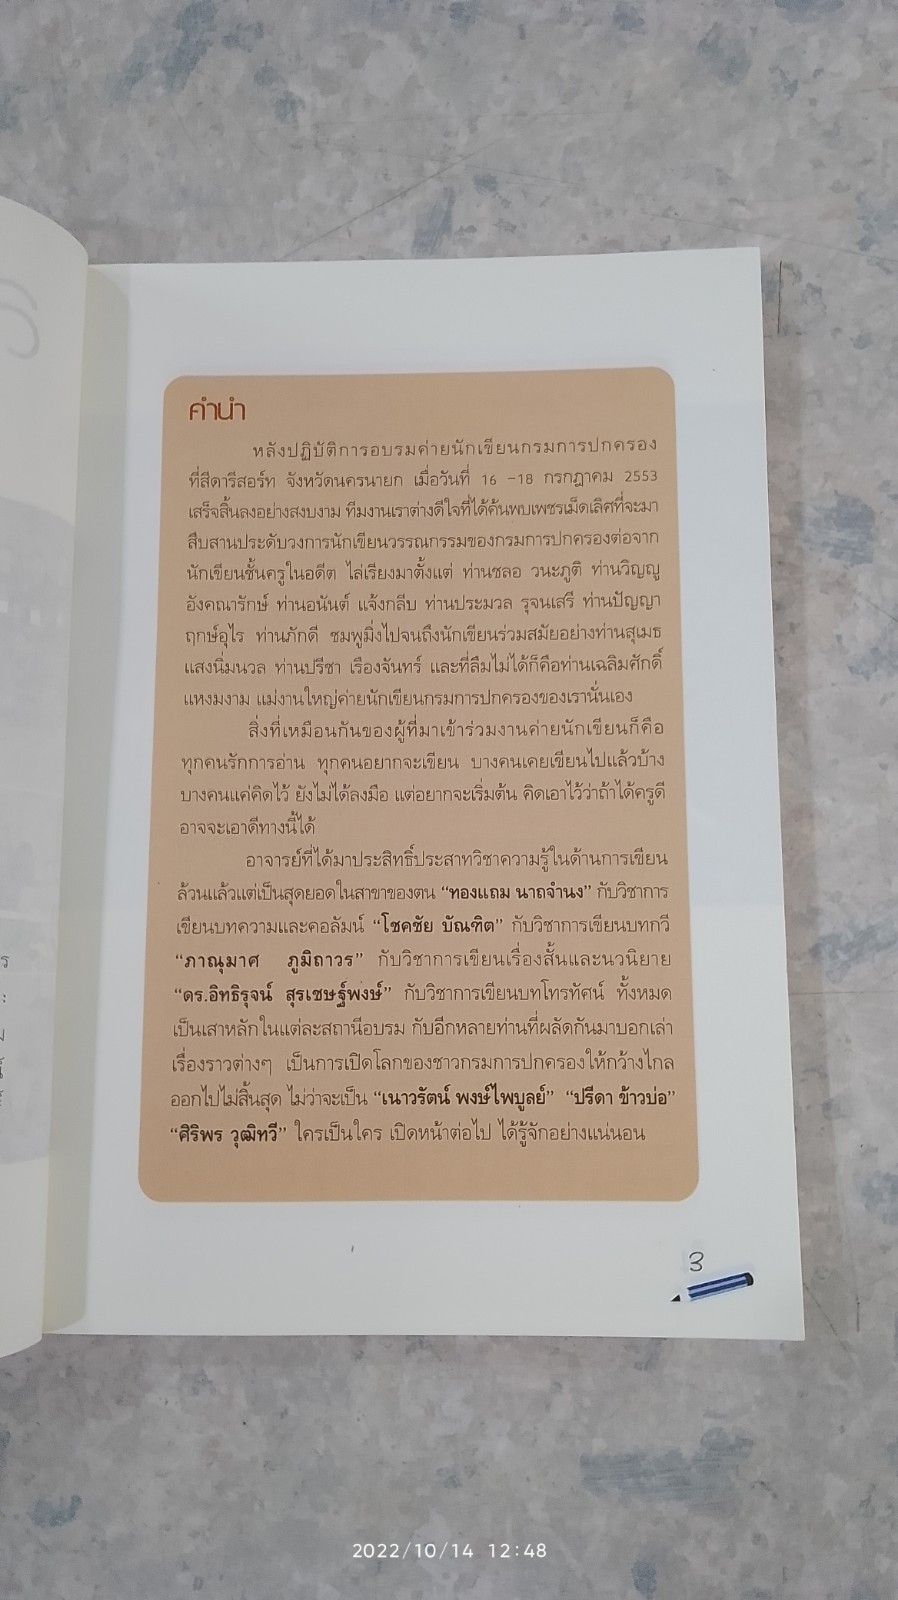 คำนำ
หลังปฏิบัติการอบรมค่ายนักเขียนกรมการปกครอง
ที่สีดารีสอร์ท จังหวัดนครนายก เมื่อวันที่ 16 -18 กรกฎาคม 2553
เสร็จสิ้นลงอย่างสงบงาม ทีมงานเราต่างดีใจที่ได้ค้นพบเพชรเม็ดเลิศที่จะมา
สืบสานประดับวงการนักเขียนวรรณกรรมของกรมการปกครองต่อจาก
นักเขียนชั้นครูในอดีต ไล่เรียงมาตั้งแต่ ท่านชลอ วนะภูติ ท่านวิญญู
อังคณารักษ์ ท่านอนันต์ แจ้งกลีบ ท่านประมวล รุจนเสรี ท่านปัญญา
ฤกษ์อุไร ท่านภักดี ชมพูมิ่งไปจนถึงนักเขียนร่วมสมัยอย่างท่านสุเมธ
แสงนิ่มนวล ท่านปรีชา เรืองจันทร์ และที่ลืมไม่ได้ก็คือท่านเฉลิมศักดิ์
แหงมงาม แม่งานใหญ่ค่ายนักเขียนกรมการปกครองของเรานั่นเอง
สิ่งที่เหมือนกันของผู้ที่มาเข้าร่วมงานค่ายนักเขียนก็คือ
ทุกคนรักการอ่าน ทุกคนอยากจะเขียน บางคนเคยเขียนไปแล้วบ้าง
บางคนแค่คิดไว้ ยังไม่ได้ลงมือ แต่อยากจะเริ่มต้น คิดเอาไว้ว่าถ้าได้ครูดี
อาจจะเอาดีทางนี้ได้
อาจารย์ที่ได้มาประสิทธิ์ประสาทวิชาความรู้ในด้านการเขียน
ล้วนแล้วแต่เป็นสุดยอดในสาขาของตน “ทองแถม นาถจำนง” กับวิชาการ
เขียนบทความและคอลัมน์ “โชคชัย บัณฑิต” กับวิชาการเขียนบทกวี
“ภาณุมาศ ภูมิถาวร” กับวิชาการเขียนเรื่องสั้นและนวนิยาย
“ดร.อิทธิรุจน์ สุรเชษฐ์พงษ์” กับวิชาการเขียนบทโทรทัศน์ ทั้งหมด
เป็นเสาหลักในแต่ละสถานีอบรม กับอีกหลายท่านที่ผลัดกันมาบอกเล่า
เรื่องราวต่างๆ เป็นการเปิดโลกของชาวกรมการปกครองให้กว้างไกล
ออกไปไม่สิ้นสุด ไม่ว่าจะเป็น “เนาวรัตน์ พงษ์ไพบูลย์” “ปรีดา ข้าวบ่อ”
“ศิริพร วุฒิทวี” ใครเป็นใคร เปิดหน้าต่อไป ได้รู้จักอย่างแน่นอน
3
2022/10/14 12:48